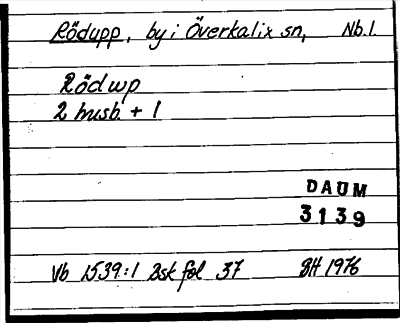 Rödupp, by i Överkalix sn, Nb.l.
Rödwp
2 husb. + 1
DAUM
3139
Vb 1539:1 Bsk fol 37 GH 1976